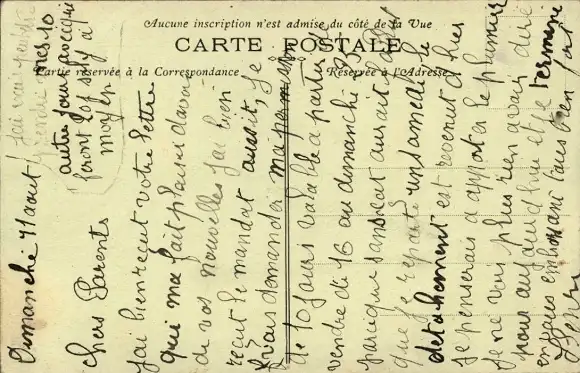 Aucune inscription n'est admise du côté de la Vue
CARTE POSTALE
Partie réservée à la Correspondance
Réservée à l'Adresse
Dimanche 11 aout
chers Parents
J'ai bien recut votre lettre
qui ma fait plaisir davoir
de vos nouvelles j'ai bien
recut le mandat aussit, je
vais demander ma permission
de 10 jours valable a partir de
vendredi 16 au dimanche
parceque sans
que je reparte un samedi le
detachement est revenut d'hier
je penserais a apporter le plumier
je ne vois plus rien avous dire
pour aujourd'hui et je termine
en vous embrassant tous bien fort
Henri
J'ai
prendre mes 10
autre jour avec qui
feront
moyen